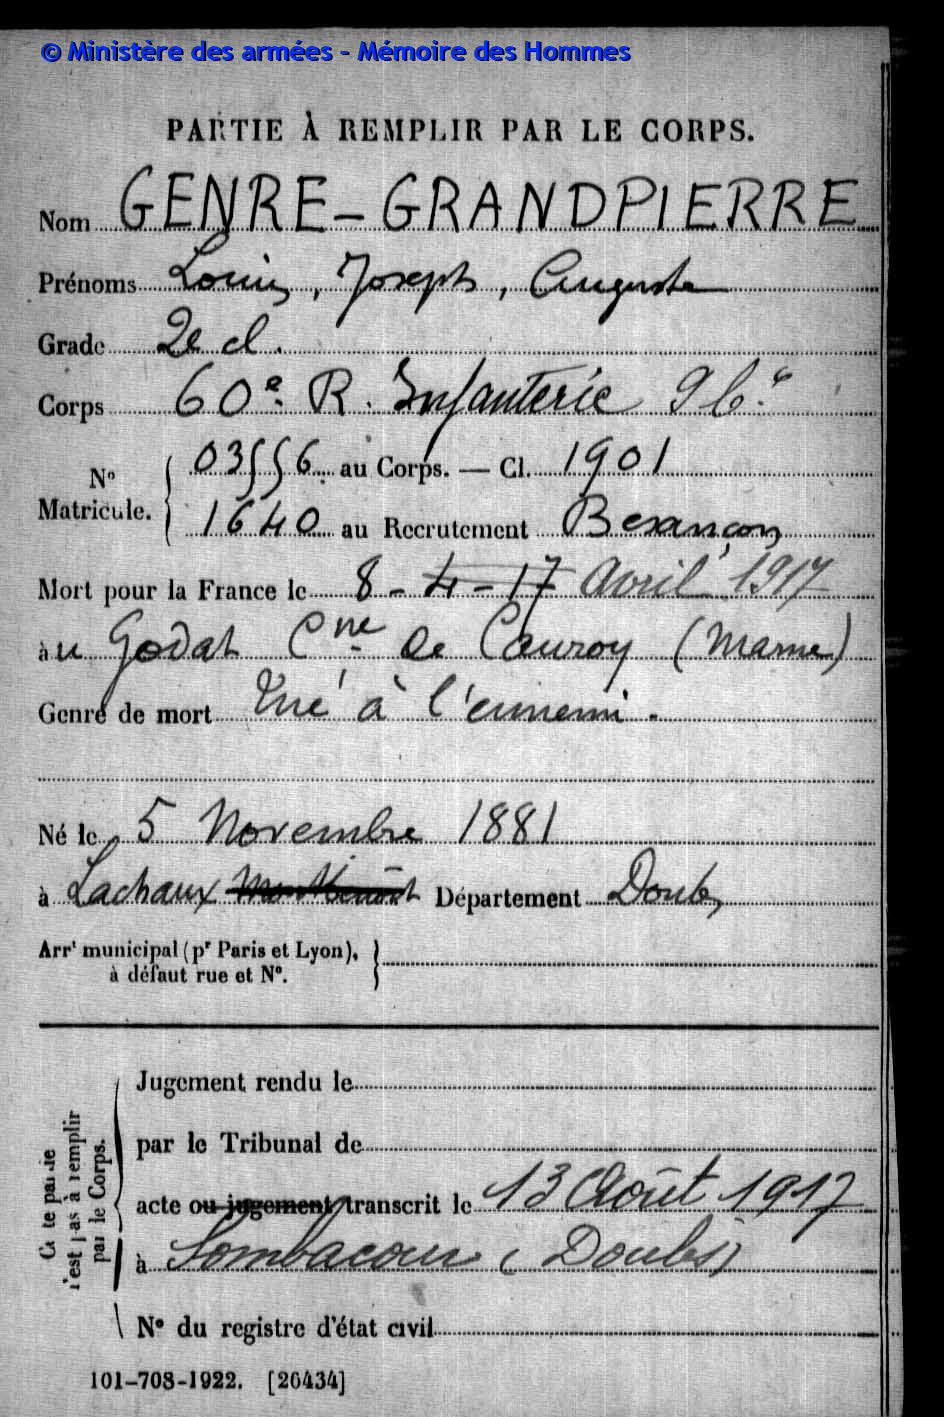 © Ministère des armées - Mémoire des Hommes
PARTIE À REMPLIR PAR LE CORPS.
Nom GENRE-GRANDPIERRE
Prénoms Louis, Joseph, Auguste
Grade 2e cl.
Corps 60e R. Infanterie 9 b.e
No Matricule. { 03556 au Corps. — Cl. 1901
1640 au Recrutement Besançon
Mort pour la France le 8 - 4 - 17 Avril 1917
à u Godat Cne de Cauroy (Marne)
Genre de mort Tué à l'ennemi.
Né le 5 Novembre 1881
à Lachaux Montbenoît Département Doubs
Arrt municipal (pr Paris et Lyon),
à défaut rue et No.
Cette partie
n'est pas à remplir
par le Corps.
Jugement rendu le
par le Tribunal de
acte ou jugement transcrit le 13 Août 1917
à Sombacour (Doubs)
No du registre d'état civil
101-708-1922. [26434]